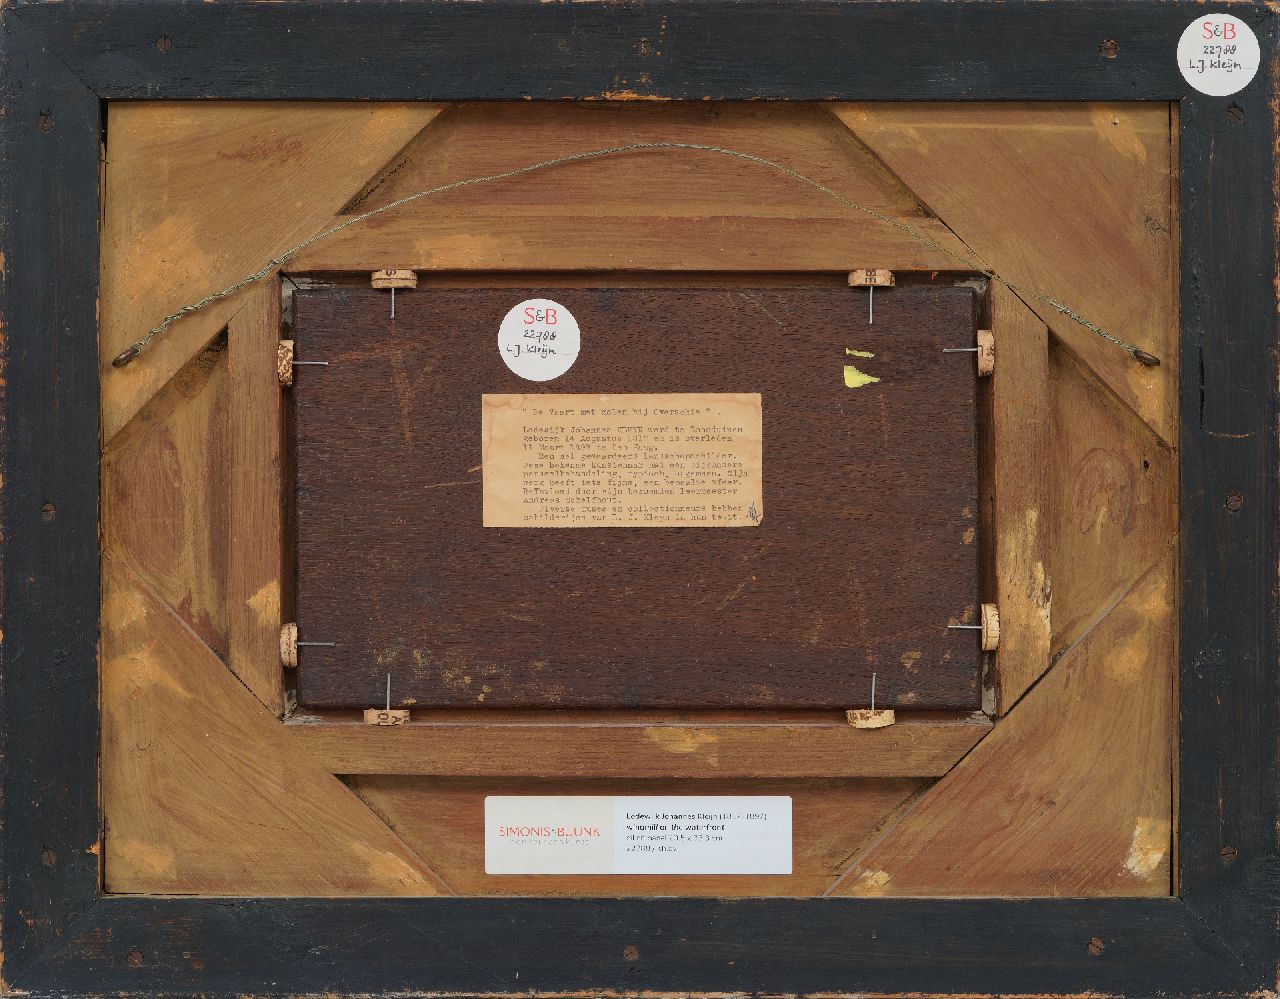 S&B
22788
L.J. Kleijn
S&B
22788
L.J. Kleijn
" De Vaart met molen bij Overschie" .
Lodewijk Johannes KLEIJN werd te Loosduinen
geboren 14 Augustus 1817 en is overleden
11 Maart 1897 te Den Haag.
Een wel gewaardeerd landschapschilder.
Deze bekende kunstenaar had een bijzondere
penseelbehandeling, typisch, algemeen. Zijn
werk heeft iets fijns, een bepaalde sfeer.
Beïnvloed door zijn beroemden leermeester
Andreas Schelfhout.
Diverse musea en collectionneurs hebben
schilderijen van L. J. Kleyn in hun bezit.
SIMONIS&BUUNK
Lodewijk Johannes Kleijn (1817-1897)
windmill on the waterfront
oil on panel